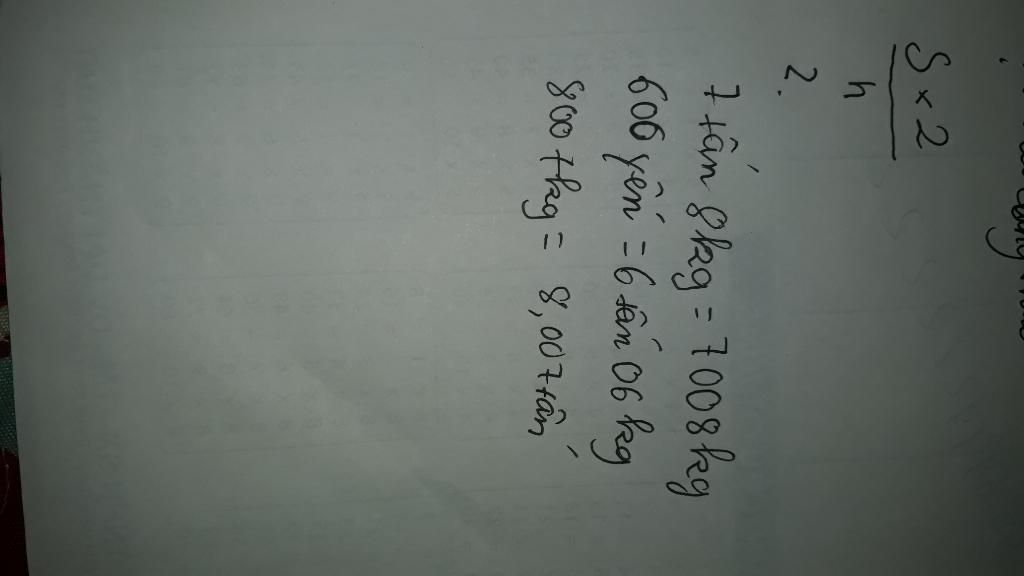 S × 2
h
2.
7 tấn 8kg = 7008kg
606 yến = 6 tấn 06 kg
8007kg = 8,007 tấn